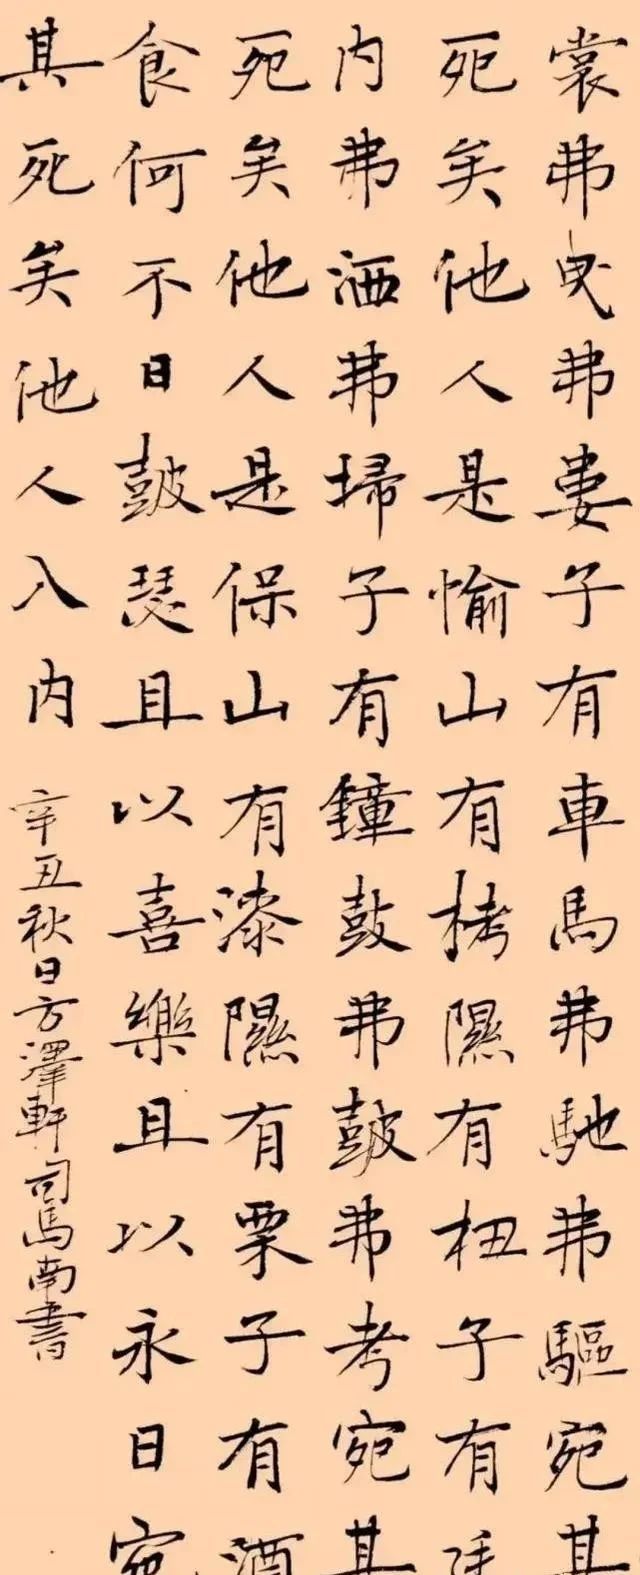 裳弗曳弗婁子有車馬弗馳弗驅宛其
死矣他人是愉山有栲隰有杻子有廷
内弗洒弗掃子有鐘鼓弗鼓弗考宛其
死矣他人是保山有漆隰有栗子有酒
食何不日鼓瑟且以喜樂且以永日宛
其死矣他人入内
辛丑秋日方澤軒司馬南書